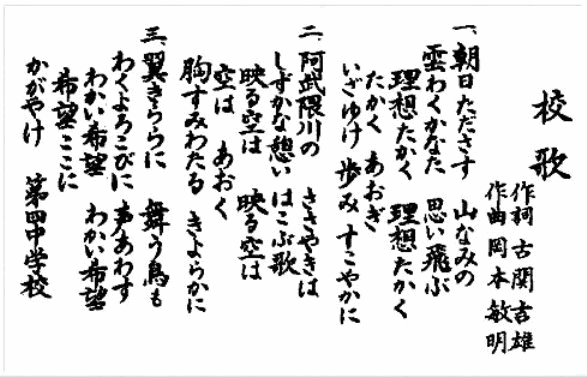 校歌
作詞 古関吉雄
作曲 岡本敏明
一、朝日たださす 山なみの
雲わくかなた 思い飛ぶ
理想たかく 理想たかく
たかく あおぎ
いざゆけ 歩み すこやかに
二、阿武隈川の ささやきは
しずかな憩い はこぶ歌
映る空は 映る空は
空は あおく
胸すみわたる きよらかに
三、翼きららに 舞う鳥も
わくよろこびに 声あわす
わかい希望 わかい希望
希望ここに
かがやけ 第四中学校